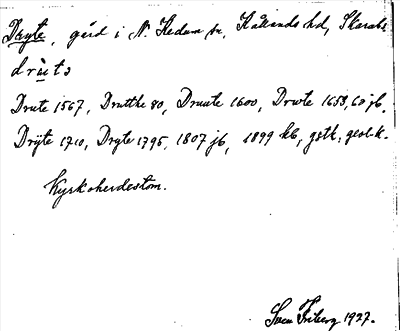 Dryte, gård i N. Kedum sn, Kållands hd, Skarabs
drùts
Drute 1567, Drutthe 80, Druute 1600, Drute 1653, 60 jb,
Drÿte 1710, Dryte 1795, 1807 jb, 1899 kb, gstk, geol.k.
Kyrkoherdestom.
Sven Friberg 1927.